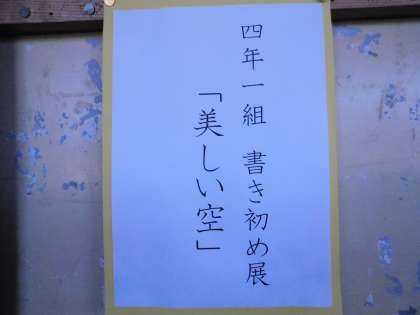 四年一組 書き初め展
「美しい空」